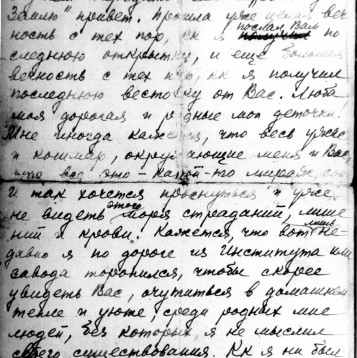 привет. Прошла уже целая веч
ность с тех пор, как я послал Вам
последнюю открытку, и еще большая
вечность с тех пор, как я получил
последнюю весточку от Вас. Люба
моя дорогая и родные мои деточки.
Мне иногда кажется, что весь ужас
и кошмар, окружающие меня и Вас,
что все это – какой-то мираж,
и так хочется проснуться и уже
не видеть этого моря страданий, лише
ний и крови. Кажется, что вот лишь не
давно я по дороге из Института или
завода торопился, чтобы скорее
увидеть Вас, очутиться в домашнем
тепле и уюте, среди родных мне
людей, без которых я не мыслил
своего существования. Как я ни был